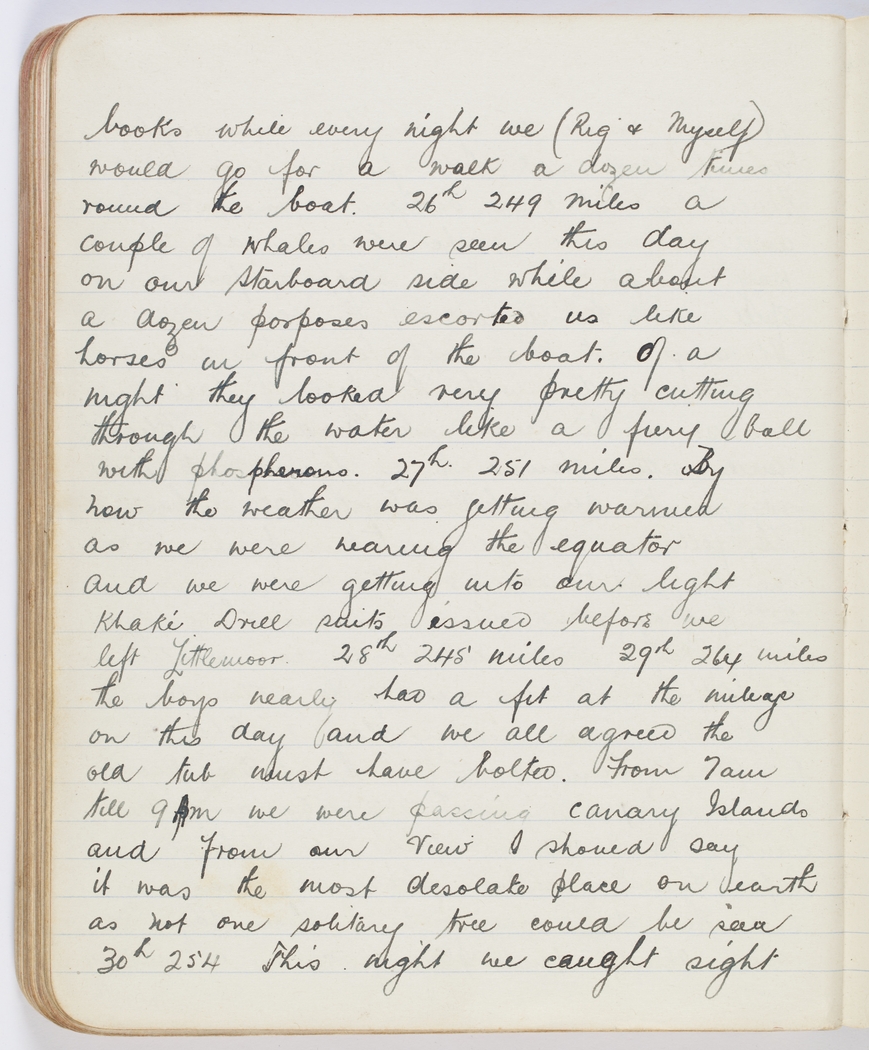 books while every night we (Reg & Myself)
would go for a walk a dozen times
round the boat. 26th 249 miles a
couple of whales were seen this day
on our starboard side while about
a dozen porposes escorted us like
horses in front of the boat. Of a
night they looked very pretty cutting
through the water like a firey ball
with phospherous. 27th. 251 miles. By
now the weather was getting warmer
as we were nearing the equator
and we were getting into our light
Khaki Drill suits issued before we
left Littlemoor. 28th 245 miles 29th 264 miles
the boys nearly had a fit at the mileage
on this day and we all agreed the
old tub must have bolted. From 7am
till 9pm we were passing Canary Islands
and from our view I should say
it was the most desolate place on earth
as not one solitary tree could be seen
30th 254 This night we caught sight